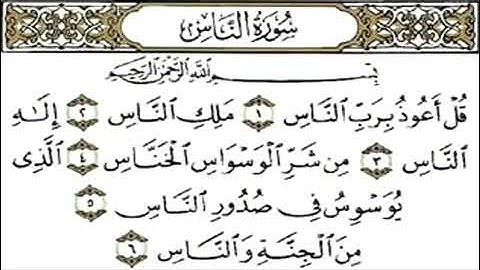 سُورَةُ النَّاسِ
بِسْمِ اللَّهِ الرَّحْمَٰنِ الرَّحِيمِ
قُلْ أَعُوذُ بِرَبِّ النَّاسِ ١ مَلِكِ النَّاسِ ٢ إِلَٰهِ
النَّاسِ ٣ مِن شَرِّ الْوَسْوَاسِ الْخَنَّاسِ ٤ الَّذِى
يُوَسْوِسُ فِى صُدُورِ النَّاسِ ٥
مِنَ الْجِنَّةِ وَالنَّاسِ ٦